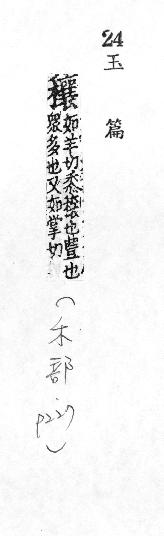 24
玉篇
穰如羊切黍穰也豊也
衆多也又如掌切
(禾部
p227)